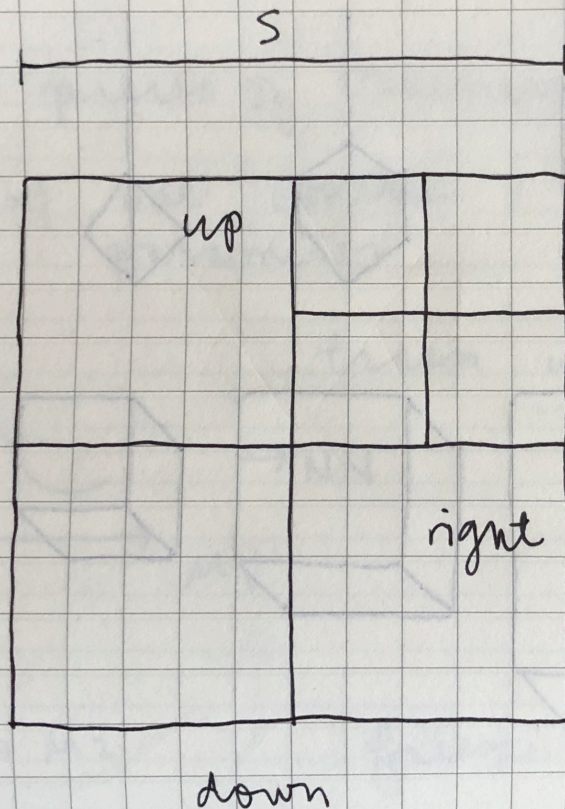 S
up
right
down